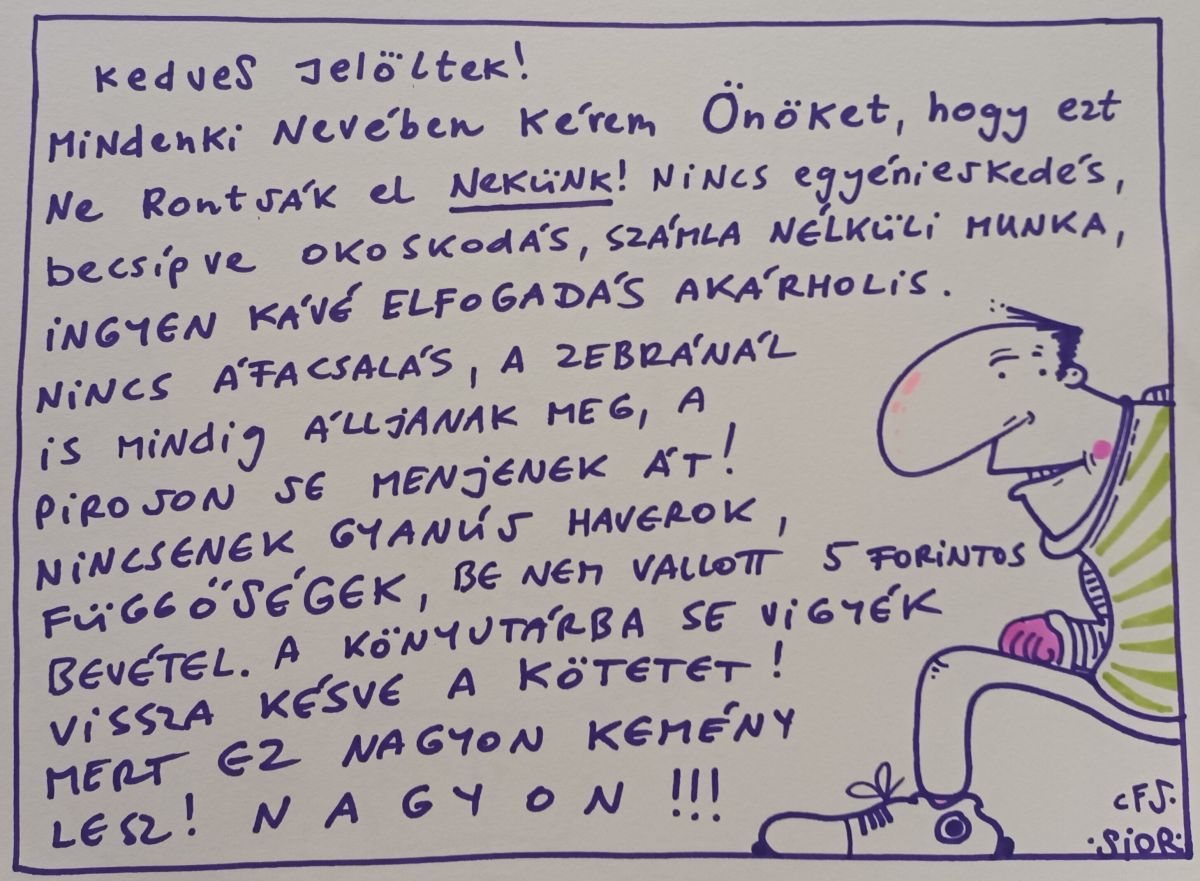 Kedves Jelöltek!
Mindenki nevében kérem Önöket, hogy ezt
ne rontsák el nekünk! Nincs egyénieskedés,
becsípve okoskodás, SZÁMLA NÉLKÜLI MUNKA,
INGYEN KÁVÉ ELFOGADÁS AKÁRHOLIS.
NINCS ÁFACSALÁS, A ZEBRÁNÁL
IS MINDIG ÁLLJANAK MEG, A
PIROSON SE MENJENEK ÁT!
NINCSENEK GYANÚS HAVEROK,
FÜGGŐSÉGEK, BE NEM VALLOTT 5 FORINTOS
BEVÉTEL. A KÖNYUTÁRBA SE VIGYÉK
VISSZA KÉSVE A KÖTETET!
MERT EZ NAGYON KEMÉNY
LESZ! NAGYON!!!
CFS.
.SIOR.